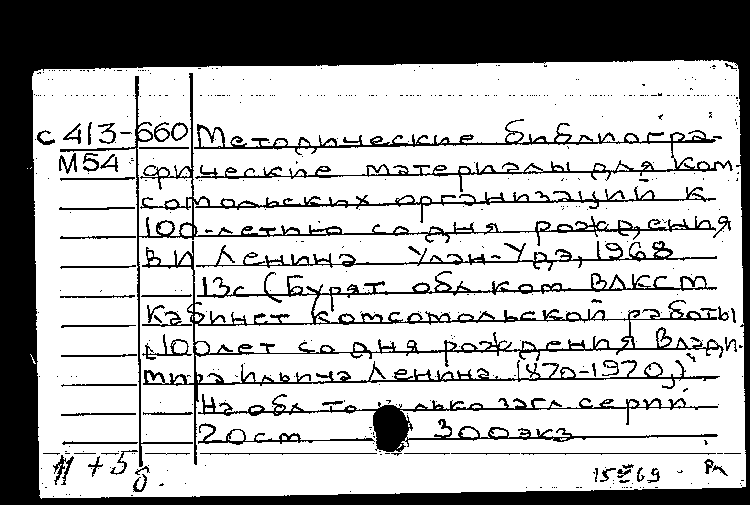 с 413-660 Методические библиогра-
М54 фические материалы для ком-
сомольских организаций к
100-летию со дня рождения
В.И Ленина. Улан-Удэ, 1968
13с (Бурят. обл ком ВЛКСМ
Кабинет комсомольской работы
"100 лет со дня рождения Влади-
мира Ильича Ленина. (1870-1970)"
На обл только загл. серии.
20см. 300экз.
15 69